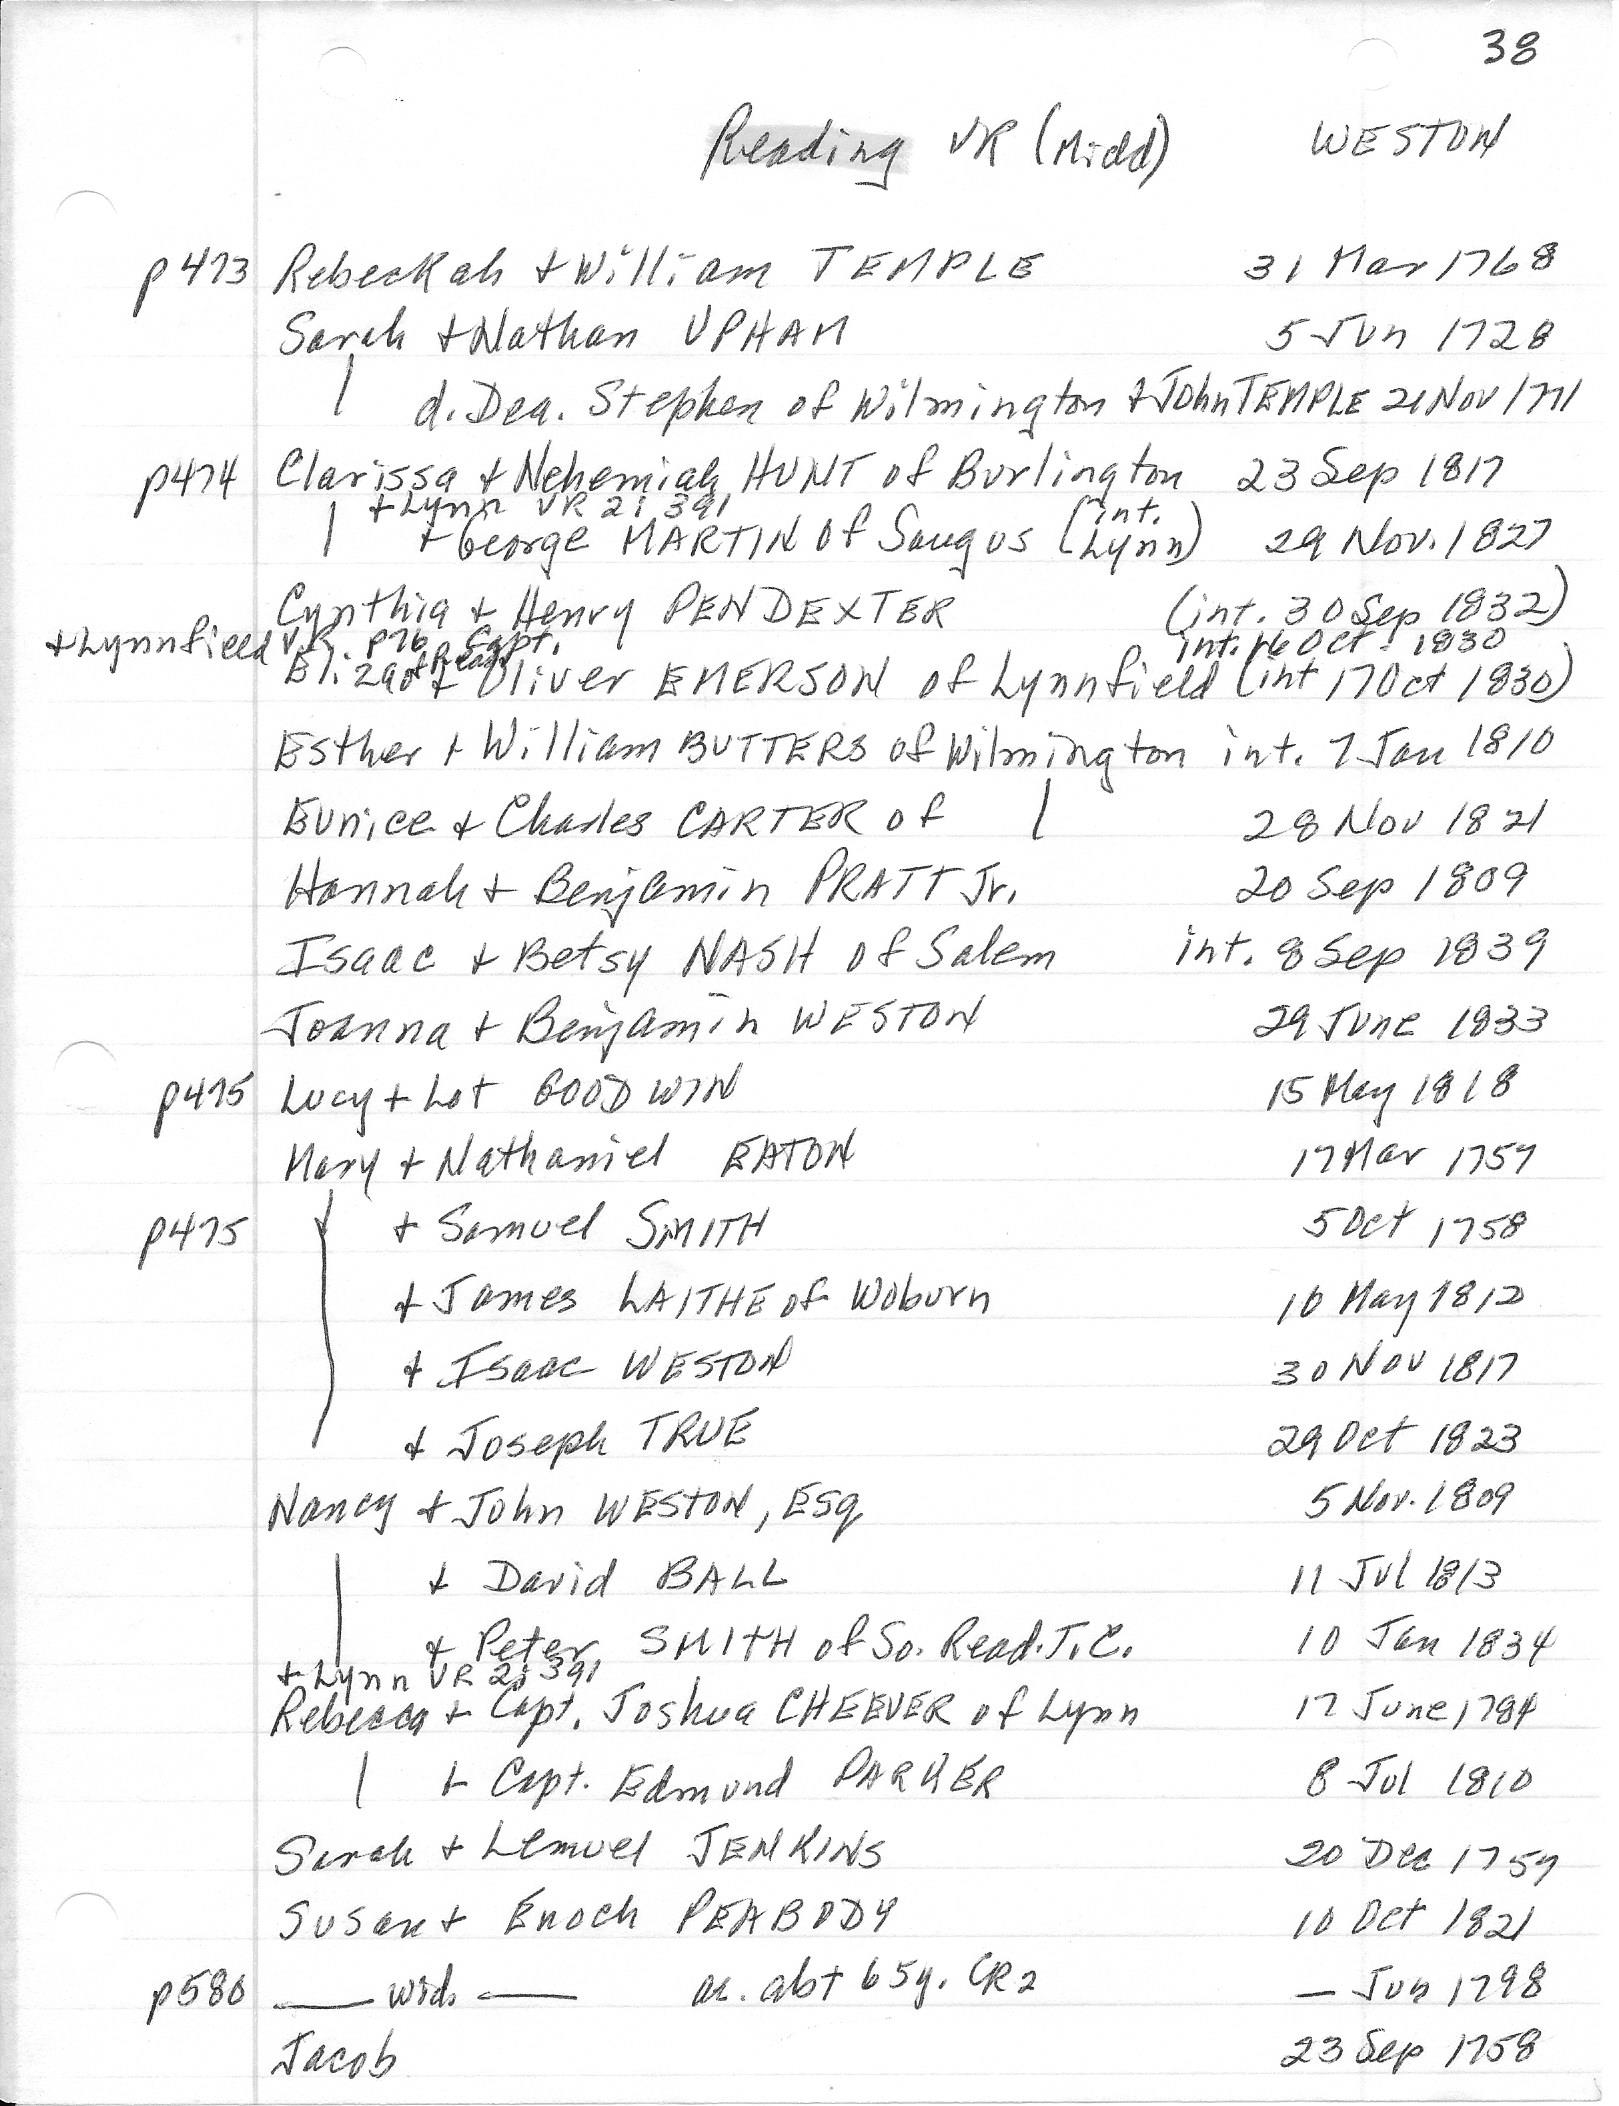 38
Reading VR (Midd) WESTON
p473 Rebeckah + William TEMPLE 31 Mar 1768
Sarah + Nathan UPHAM 5 Jun 1728
d. Dea. Stephen of Wilmington + John TEMPLE 21 Nov 1771
p474 Clarissa + Nehemiah HUNT of Burlington 23 Sep 1817
+ Lynn VR 2: 391
+ George MARTIN of Saugus (int. Lynn) 29 Nov. 1827
Cynthia + Henry PENDEXTER (int. 30 Sep 1832)
+ Lynnfield VR. p76 Capt. int. 16 Oct. 1830
Eliza of Read + Oliver EMERSON of Lynnfield (int 17 Oct 1830)
Esther + William BUTTERS of Wilmington int. 7 Jan 1810
Eunice + Charles CARTER of | 28 Nov 1821
Hannah + Benjamin PRATT Jr. 20 Sep 1809
Isaac + Betsy NASH of Salem int. 8 Sep 1839
Joanna + Benjamin WESTON 29 June 1833
p475 Lucy + Lot GOODWIN 15 May 1818
Mary + Nathaniel EATON 17 Mar 1757
p475 + Samuel SMITH 5 Oct 1758
+ James LAITHE of Woburn 10 May 1812
+ Isaac WESTON 30 Nov 1817
+ Joseph TRUE 29 Oct 1823
Nancy + John WESTON, Esq 5 Nov. 1809
+ David BALL 11 Jul 1813
+ Peter SMITH of So. Read. T.C. 10 Jan 1834
+ Lynn VR 2: 391
Rebecca + Capt. Joshua CHEEVER of Lynn 17 June 1784
+ Capt. Edmund PARKER 8 Jul 1810
Sarah + Lemuel JENKINS 20 Dec 1757
Susan + Enoch PEABODY 10 Oct 1821
p580 — wid. — ae. abt 65y. CR2 — Jun 1798
Jacob 23 Sep 1758